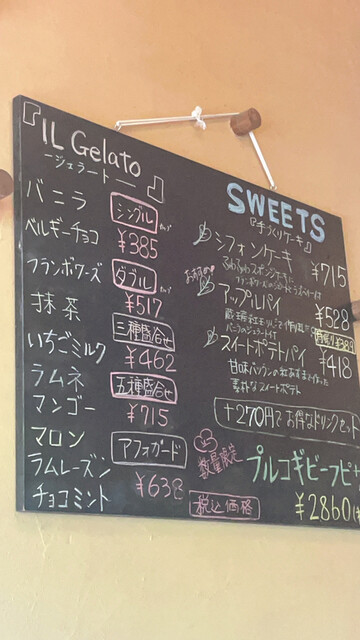 『IL Gelato
ージェラートー 』
バニラ
ベルギーチョコ
フランボワーズ
抹茶
いちごミルク
ラムネ
マンゴー
マロン
ラムレーズン
チョコミント
シングル
¥385
ダブル
¥517
三種盛合せ
¥462
五種盛合せ
¥715
アフォガード
¥638
税込価格
SWEETS
『手づくりケーキ』
シフォンケーキ ¥715
ふわふわスポンジケーキに
おすすめ
アップルパイ ¥528
スイートポテトパイ ¥418
甘味バツグンの紅あずまで作った
素朴なスイートポテト
+270円でお得なドリンクセット
数量限定
プルコギビーフピ
¥2860